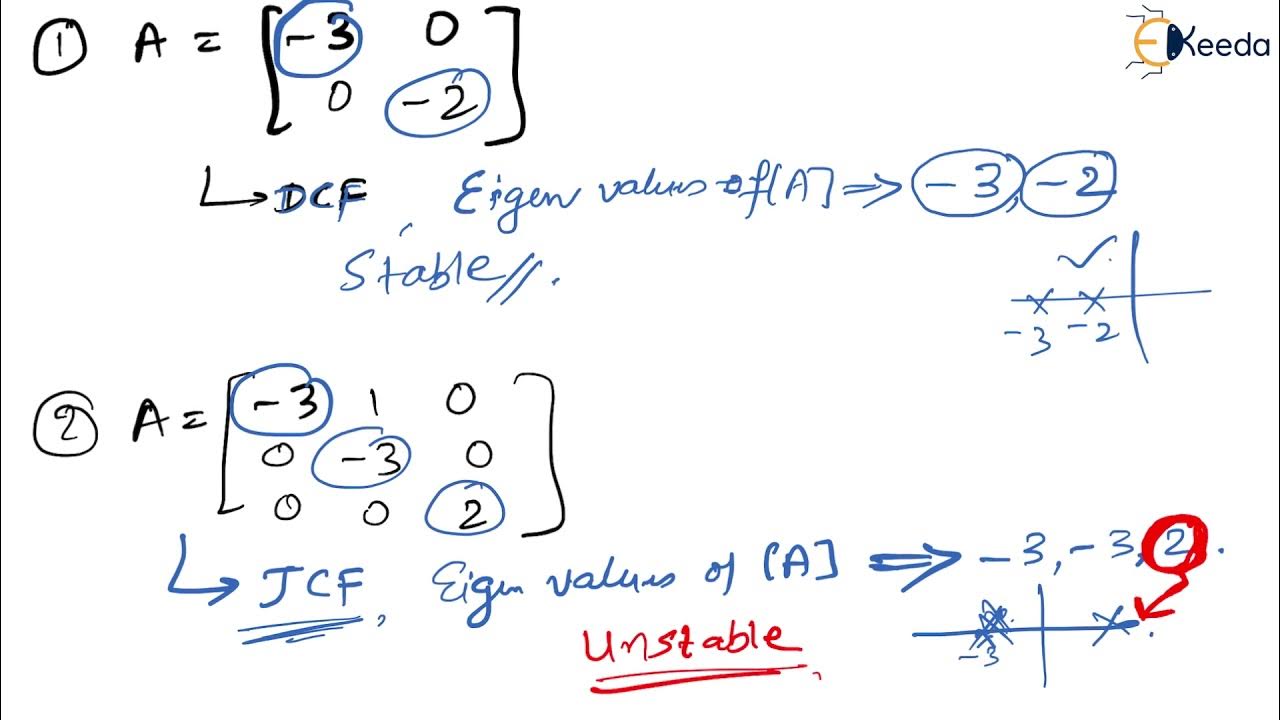 EKeeda
① A = [ -3 0
0 -2 ]
↳ DCF Eigen values of [A] ⇒ -3, -2
Stable //.
✓
-3 -2
② A = [ -3 1 0
0 -3 0
0 0 2 ]
↳ JCF, Eigen values of [A] ⇒ -3, -3, 2.
Unstable,
-3